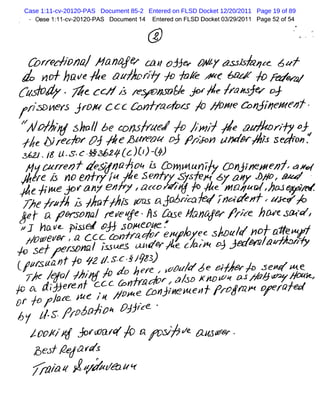 Case 1:11-cv-20120-PAS Document 85-2 Entered on FLSD Docket 12/20/2011 Page 19 of 89
Case 1:11-cv-20120-PAS Document 14 Entered on FLSD Docket 03/29/2011 Page 52 of 54
2
Correctional Manager can offer only assistance but
do not have the authority to take me back to Federal
Custody. The CCM is responsable for the transfer of
prisoners from CCC Contractors to Home Confinement.
"Nothing shall be construed to limit the authority of
the Director of the Bureau of Prison under this section."
3621. 18 U.S.C §§3624(c)(1)-(4)
My current designation is Community Confinement. and
there is no entry in the Sentry System, by any DHO, and
the time for any entry, according to the manual, has expired.
The truth is that this was a fabricated incident. used to
get a personal revenge. As Case Manager Price have said,
"I have pissed off someone."
However, a CCC Contractor employee should not attempt
to set personal issues under the claim of federal authority
(pursuant to 42 U.S.C. § 1983)
The legal thing to do here, would be either to send me
to a different CCC Contractor, also known as Halfway House,
or to place me in Home Confinement Program operated
by U.S. Probation Office.
Looking forward to a positive answer.
Best Regards
Traian Bujduveanu